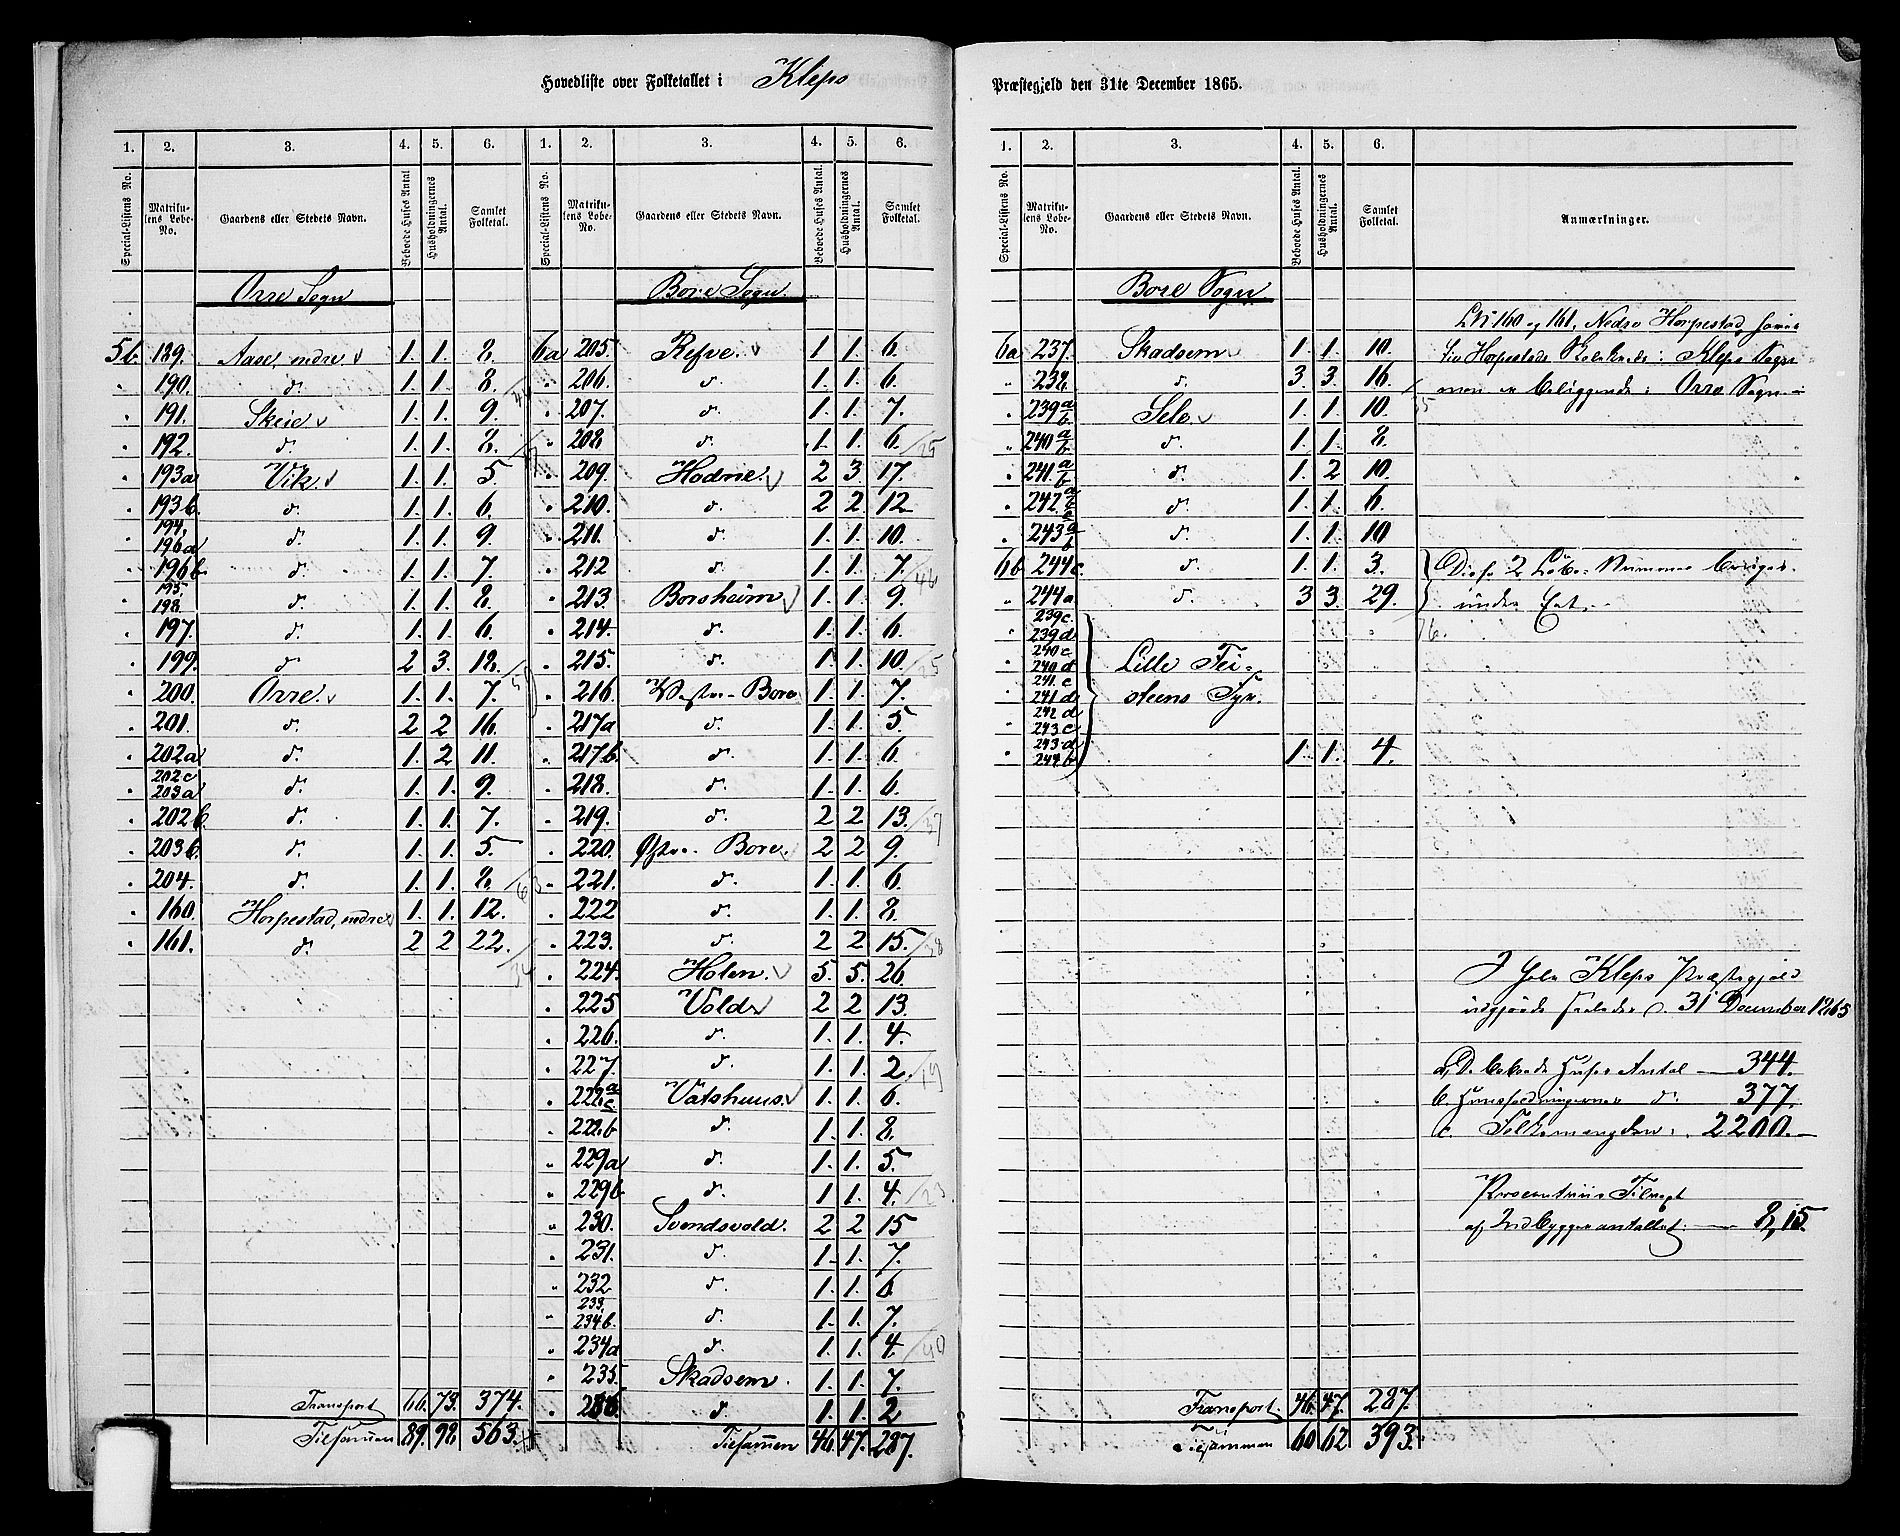 Hovedliste over Folketallet i Klepp Præstegjeld den 31te December 1865.
1. 2. 3. 4. 5. 6. 1. 2. 3. 4. 5. 6.
Special-Listens No. Matrikulens Løbe-No. Gaardens eller Stedets Navn. Beboede Huses Antal Husholdningernes Antal. Samlet Folketal. Special-Listens No. Matrikulens Løbe-No. Gaardens eller Stedets Navn. Beboede Huses Antal. Husholdningernes Antal. Samlet Folketal.
Orre Sogn
5b. 189. Aase, indre 1. 1. 8.
" 190. d. 1. 1. 8.
" 191. Skeie 1. 1. 9.
" 192. d. 1. 1. 8.
" 193a Vik 1. 1. 5.
" 193b. d. 1. 1. 6.
" 194. 196a d. 1. 1. 9.
" 196b. d. 1. 1. 7.
" 195. 198. d. 1. 1. 8.
" 197. d. 1. 1. 6.
" 199. d. 2 3. 18.
" 200. Orre. 1. 1. 7.
" 201. d. 2 2 16.
" 202a d. 1. 2 11.
" 202c 203a d. 1. 1. 9.
" 202b. d. 1. 1. 7.
" 203b. d. 1. 1. 5.
" 204. d. 1. 1. 8.
" 160. Horpestad, nedre 1. 1. 12.
" 161. d. 2 2 22.
Transport 66. 73. 374.
Tilsammen 89. 98. 563.
Bore Sogn.
6a 205. Refve. 1 1 6.
" 206. d. 1 1. 6.
" 207. d. 1 1. 7.
" 208 d. 1. 1. 6.
" 209. Hodne. 2 3 17.
" 210. d. 2 2. 12
" 211. d. 1. 1. 10.
" 212 d. 1. 1. 7.
" 213. Borsheim 1. 1. 9.
" 214. d. 1. 1. 6.
" 215. d. 1. 1. 10.
" 216. Vestre Bore 1. 1. 7.
" 217a d. 1. 1. 5.
" 217b. d. 1. 1. 6.
" 218. d. 1. 1. 6.
" 219. d. 2 2 13.
" 220. Østre Bore. 2 2 9.
" 221. d. 1. 1. 6.
" 222 d. 1. 1. 8.
" 223. d. 2 2 15.
" 224. Holen. 5. 5. 26.
" 225 Vold 2 2 13.
" 226. d. 1. 1. 4.
" 227. d. 1. 1. 2.
" 228 a c Vatshuus. 1. 1. 6.
" 228b d. 1. 1. 8.
" 229a d. 1. 1. 5.
" 229b d. 1. 1. 4.
" 230. Svendsvold. 2 2 15
" 231. d. 1. 1. 7.
" 232 d. 1. 1. 6.
" 233. 234b. d. 1. 1. 7.
" 234a d. 1. 1. 4.
" 235. Skadsem. 1. 1. 7.
" 236. d. 1. 1. 2
Tilsammen 46. 47. 287.
1. 2. 3. 4. 5. 6.
Special-Listens No. Matrikulens Løbe-No. Gaardens eller Stedets Navn. Beboede Huses Antal. Husholdningernes Antal. Samlet Folketal. Anmærkninger.
Bore Sogn.
6a 237. Skadsem 1. 1. 10.
" 238. d. 3. 3. 16.
" 239 a b. Sele 1. 1. 10.
" 240. a b d. 1. 1. 8.
" 241. a b d. 1. 2 10.
" 242. a b c d. 1. 1. 6
" 243 a b d. 1. 1. 10
6b 244c. d. 1. 1. 3.
" 244a d. 3 3. 29.
239c.
239d.
240c
240d
241.c
241.d
242 d
243c
243d
244b
Lille Fei-
steens Fyr.
1. 1. 4.
Transport. 46. 47. 287.
Tilsammen 60 62 393.
LN 160 og 161, Nedre Horpestad, hører
til Horpestads Skolekreds i Klepp Sogn
men er beliggende i Orre Sogn
Disse 2 Løbe-Numere bruges
under Eet.
I hele Klepp Præstegjeld
udgjorde saaledes d. 31 December 1865
a, De beboede Huses Antal — 344.
b. Huusholdningernes d. 377.
c. Folkemængden. . 2200.—
Procentviis Tilvæxt
af Indbyggerantallet. — 8,15.